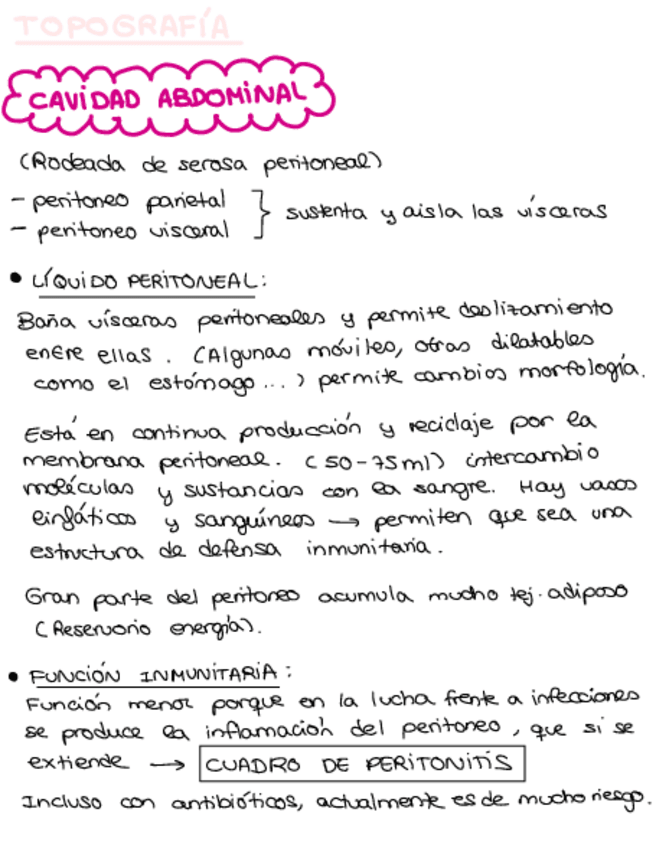 TOPOGRAFÍA
CAVIDAD ABDOMINAL
(Rodeada de serosa peritoneal)
- peritoneo parietal
- peritoneo visceral
sustenta y aisla las vísceras
• LÍQUIDO PERITONEAL:
Baña vísceras peritoneales y permite deslizamiento
entre ellas. (Algunas móviles, otras dilatables
como el estómago...) permite cambios morfología.
Está en continua producción y reciclaje por la
membrana peritoneal. (50-75ml) intercambio
moléculas y sustancias con la sangre. Hay vasos
linfáticos y sanguíneos → permiten que sea una
estructura de defensa inmunitaria.
Gran parte del peritoneo acumula mucho tej. adiposo
(Reservorio energía).
• FUNCIÓN INMUNITARIA:
Función menor porque en la lucha frente a infecciones
se produce la inflamación del peritoneo, que si se
extiende → CUADRO DE PERITONITIS
Incluso con antibióticos, actualmente es de mucho riesgo.